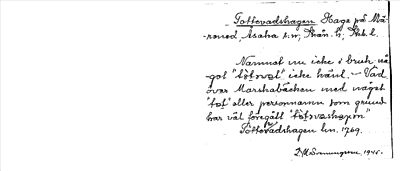 Tottevadshagen Hage på Mä-
rsned, Asaka s:n,
Namnet nu icke i bruk nå-
got "tòtvat" icke hänt. – Vad
över Marshabäcken med något
"tot" eller personnamn som grund
har väl föregått "tòtvashagen"
Tottevadshagen lm. 1769.
1945.